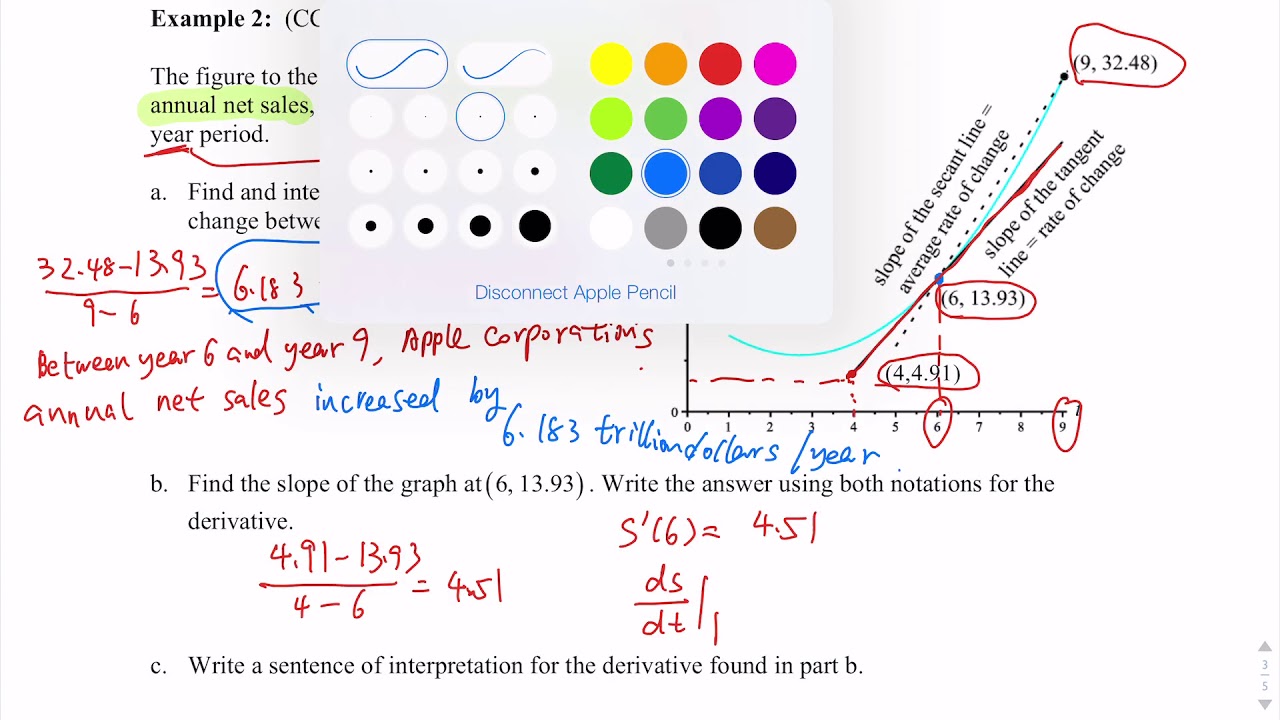 Example 2: (CC
The figure to the
annual net sales,
year period.
a. Find and inte
change betwe
32.48-13.93
9-6
= 6.183
Between year 6 and year 9, Apple Corporations
annual net sales increased by
6.183 trillion dollars/year
Disconnect Apple Pencil
(9, 32.48)
slope of the secant line =
average rate of change
slope of the tangent
line = rate of change
(6, 13.93)
(4,4.91)
0
0 1 2 3 4 5 6 7 8 9
b. Find the slope of the graph at (6, 13.93). Write the answer using both notations for the
derivative.
4.91-13.93
4-6
= 4.51
S'(6) = 4.51
ds
dt
c. Write a sentence of interpretation for the derivative found in part b.
3
5